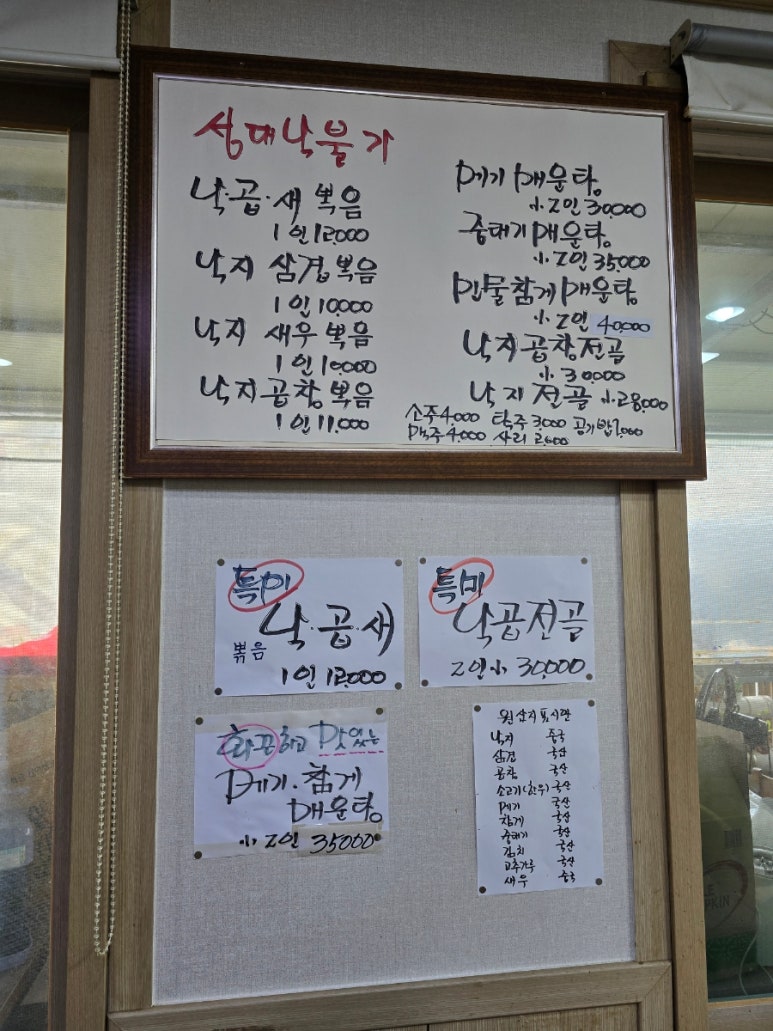 상대낙불가
낙.곱.새 볶음
1인 12,000
낙지 삼겹볶음
1인 10,000
낙지 새우 볶음
1인 10,000
낙지곱창볶음
1인 11,000
메기매운탕
小 2인 30,000
중태기매운탕
小 2인 35,000
민물참게매운탕
小 2인 40,000
낙지곱창전골
小 30,000
낙지전골 小 28,000
소주 4,000 탁주 3,000 공기밥 1,000
맥주 4,000 사리 2,000
특미
낙.곱.새
볶음
1인 12,000
특미
낙곱전골
2인 小 30,000
화끈하고 맛있는
메기.참게
매운탕
小 2인 35000
원산지표시판
낙지 중국
삼겹 국산
곱창 국산
소고기(한우) 국산
메기 국산
참게 국산
중태기 국산
김치 국산
고추가루 국산
새우 중국